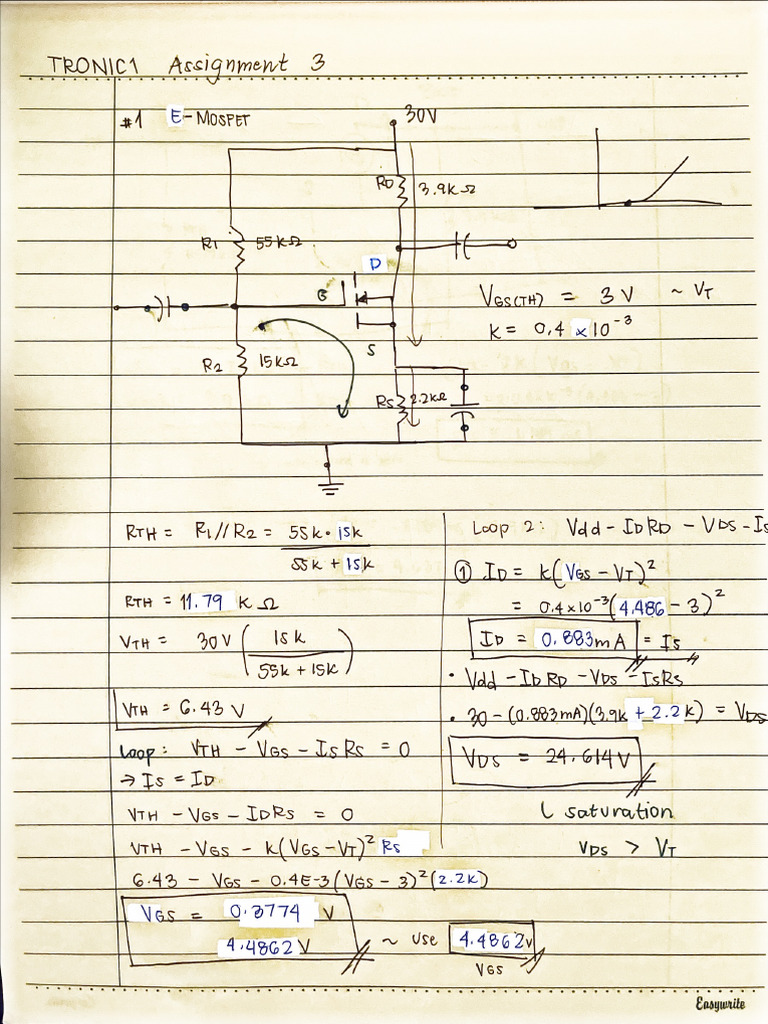 TRONIC1 Assignment 3
#1 E-MOSFET
30V
RD 3.9kΩ
R1 55kΩ
D
G
S
VGS(TH) = 3V ~ VT
k = 0.4 ×10⁻³
R2 15kΩ
RS 2.2kΩ
RTH = R1//R2 = 55k · 15k
55k + 15k
RTH = 11.79 KΩ
VTH = 30V ( 15k
55k + 15k )
VTH = 6.43 V
Loop: VTH - VGS - ISRS = 0
→ IS = ID
VTH - VGS - IDRS = 0
VTH - VGS - k(VGS-VT)² RS
6.43 - VGS - 0.4E-3(VGS - 3)²(2.2k)
VGS = 0.3774 V
4.4862 V ~ use 4.4862V
VGS
Loop 2: Vdd - IDRD - VDS - IS
① ID = k(VGS - VT)²
= 0.4×10⁻³(4.486 - 3)²
ID = 0.883mA = IS
• Vdd - IDRD - VDS - ISRS
• 30 - (0.883mA)(3.9k + 2.2k) = VDS
VDS = 24.614V
saturation
VDS > VT
Easywrite